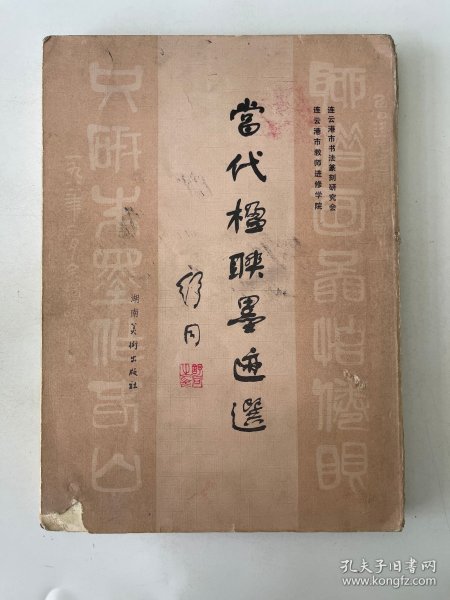 连云港市书法篆刻研究会
连云港市教师进修学院
當代楹联墨迹選
舒同
湖南美術出版社
只研朱墨作春山
孔夫子旧书网
www.kongfz.com